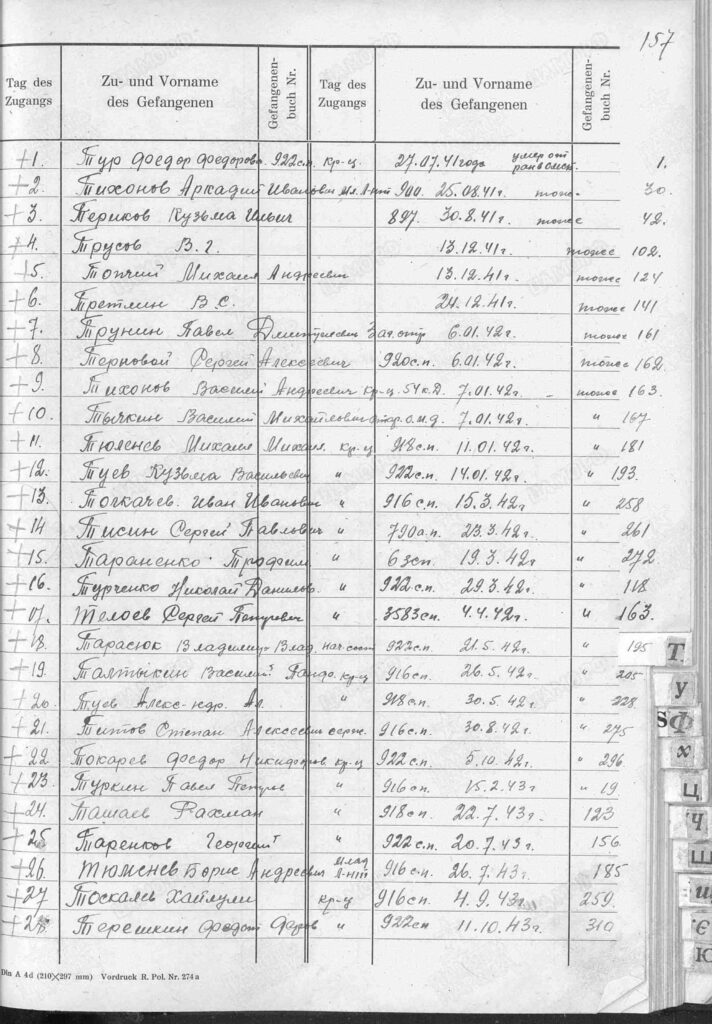 157
Tag des Zugangs Zu- und Vorname des Gefangenen Gefangenen-buch Nr. Tag des Zugangs Zu- und Vorname des Gefangenen Gefangenen-buch Nr.
+1. Тур Федор Федоров. 922 с.п. кр-ц 27.07.41 года умер от ран 1.
+2. Тихонов Аркадий Иванович 900 25.08.41г. тоже 30.
+3. Териков Кузьма Ильич 897. 30.8.41г. тоже 42.
+4. Трусов В.г. 13.12.41г. тоже 102.
+5. Топчий Михаил Андреевич 13.12.41г. тоже 124
+6. Третлин В.С. 24.12.41г. тоже 141
+7. Трунин Павел Дмитриевич 6.01.42г. тоже 161
+8. Терновой Сергей Алексеевич 920 с.п. 6.01.42г. тоже 162.
+9. Тихонов Василий Андреевич кр-ц. 54 к.д. 7.01.42г. - тоже 163.
+10. Тычкин Василий Михайлович 7.01.42г. " 167
+11. Тюленев Михаил Михаил. кр-ц 918 с.п. 11.01.42г. " 181
+12. Туев Кузьма Васильевич " 922 с.п. 14.01.42г. " 193
+13. Толкачев. Иван Иванович " 916 с.п. 15.3.42г " 258
+14 Тисин Сергей Павлович " 790 а.п. 23.3.42г. " 261
+15. Тараненко Трофим " 63 сп. 19.3.42г. " 272
+16. Турченко Николай Данилов. " 922 с.п. 29.3.42г. " 118
+17. Телоев Сергей Петрович " 3583 сп. 4.4.42г. " 163.
+18. Тарасюк Владимир Влад. нач-сост 922 с.п. 21.5.42г. " 195
+19. Талтыкин Василий кр-ц 916 с.п. 26.5.42г. " 205
+20. Туев Алекс-ндр. Ал. " 918 с.п. 30.5.42г. " 228
+21. Титов Степан Алексеевич серж. 916 с.п. 30.8.42г. " 275
+22 Токарев Федор Никифоров кр-ц 922 с.п. 5.10.42г. " 296
+23. Туркин Павел Петров " 916 с.п. 15.2.43г " 19
+24. Ташаев Рахман " 918 сп. 22.7.43г. 123
+25 Таренков Георгий " 922 с.п. 20.7.43г. 156
+26. Тюменев Борис Андреевич млад л-нт 916 с.п. 26.7.43г. 185
+27 Тоскалев кр-ц 916 сп. 4.9.43г. 259.
+28. Терешкин Федот Федов " 922 сп 11.10.43г. 310
Din A 4d (210×297 mm) Vordruck R. Pol. Nr. 274a
Т
У
S Ф
Х
Ц
Ч
Ш
Щ
Є
Ю